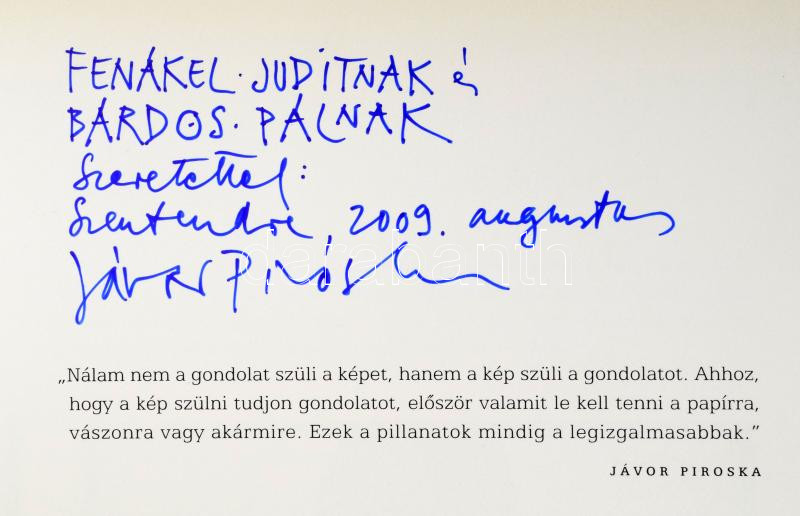 FENÁKEL JUDITNAK és
BÁRDOS PÁLNAK
Szeretettel:
Szentendre, 2009. augusztus
Jávor Piroska
darabanth
„Nálam nem a gondolat szüli a képet, hanem a kép szüli a gondolatot. Ahhoz,
hogy a kép szülni tudjon gondolatot, először valamit le kell tenni a papírra,
vászonra vagy akármire. Ezek a pillanatok mindig a legizgalmasabbak.”
JÁVOR PIROSKA